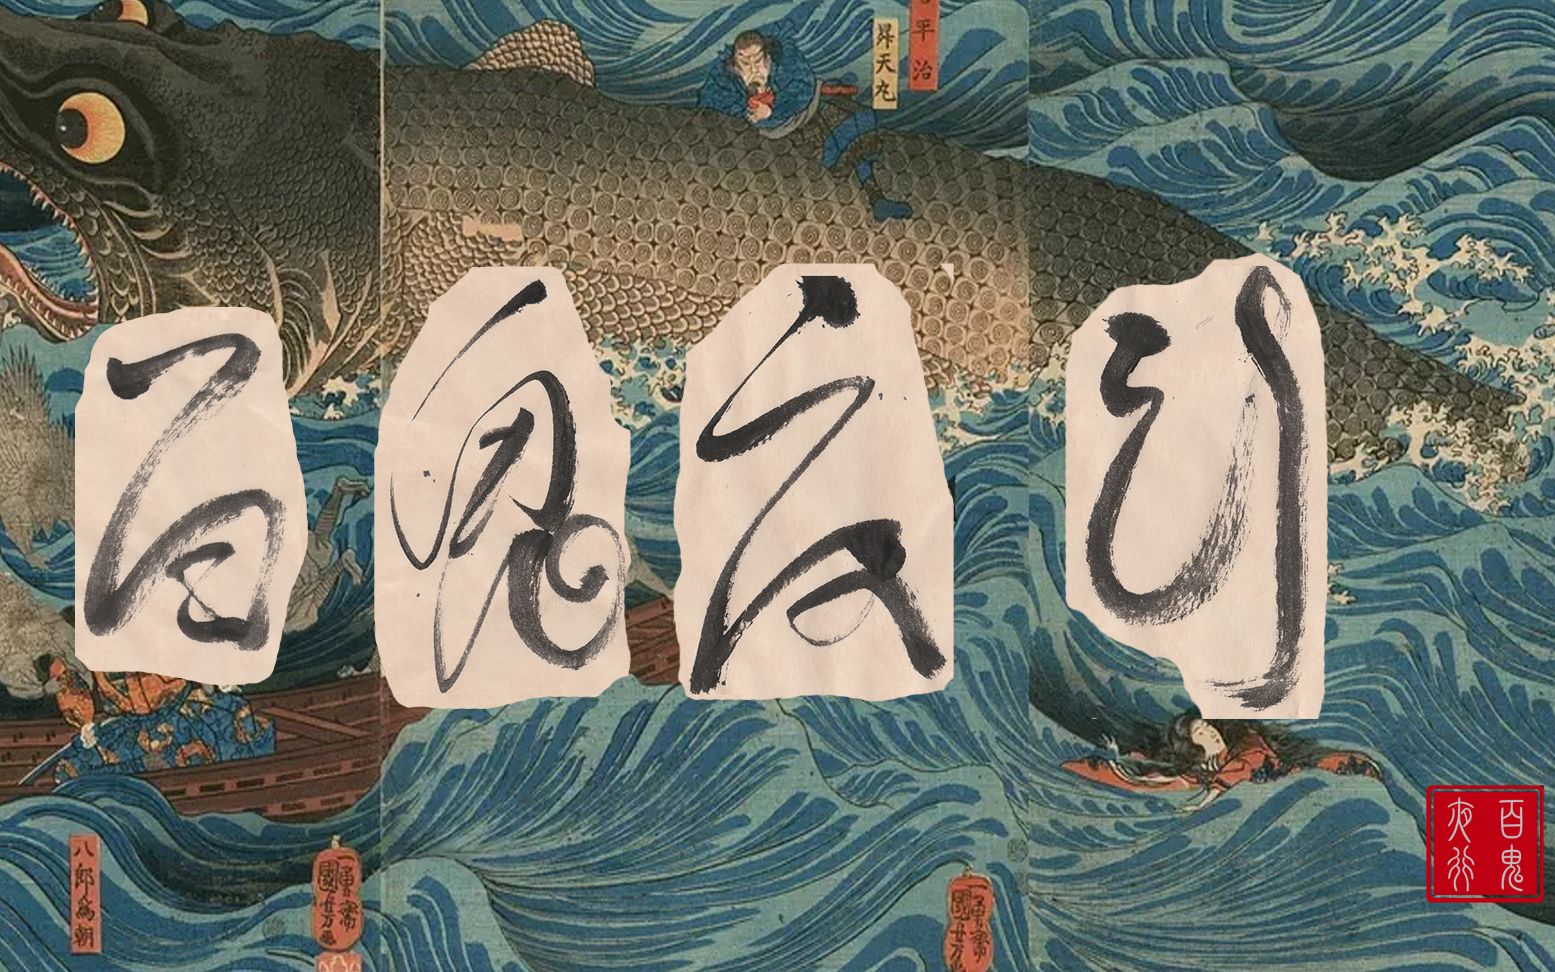 百鬼夜行
平治
昇天丸
八郎為朝
一勇齋
國芳画
一勇齋
國芳画
百鬼
夜行